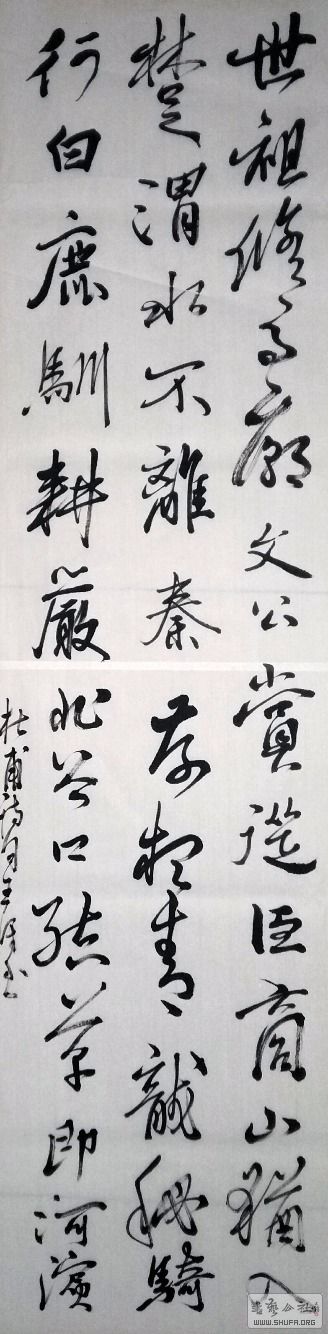 世祖修高廟文公賞從臣商山猶入
楚渭水不離秦存想青龍秘騎
行白鹿馴耕巖非谷口結草即河濱
杜甫詩句王
書藝公社
WWW.SHUFA.ORG